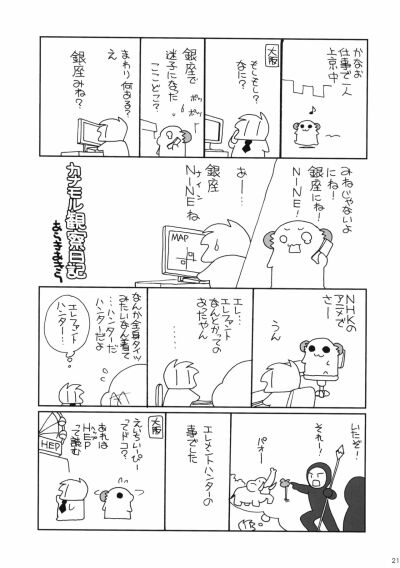 かなお
仕事で一人
上京中
♪
大阪
そもそも?
なに?
ポッポッ
銀座で
迷子になった
ここどこ?
まわり何ある?
え
銀座みね?
みねじゃないよ
銀座にね!
NINE!
あー…
銀座
NINEね
ナイン
MAP
カナモル観察日記
あらきあきら
NHKの
アニメでさー
うん
エレ…
エレファント
なんとかっての
あったやん
なんか全身タイツ
みたいなん着て
…ハンターだ
ハンターだよ
エレファント
ハンター!
いたぞー!
それー!
パオー
エレメントハンターの
事でした
大阪
えいちいーぴー
ってドコ?
あれは
HEP
ヘップ
って読む
HEP
21